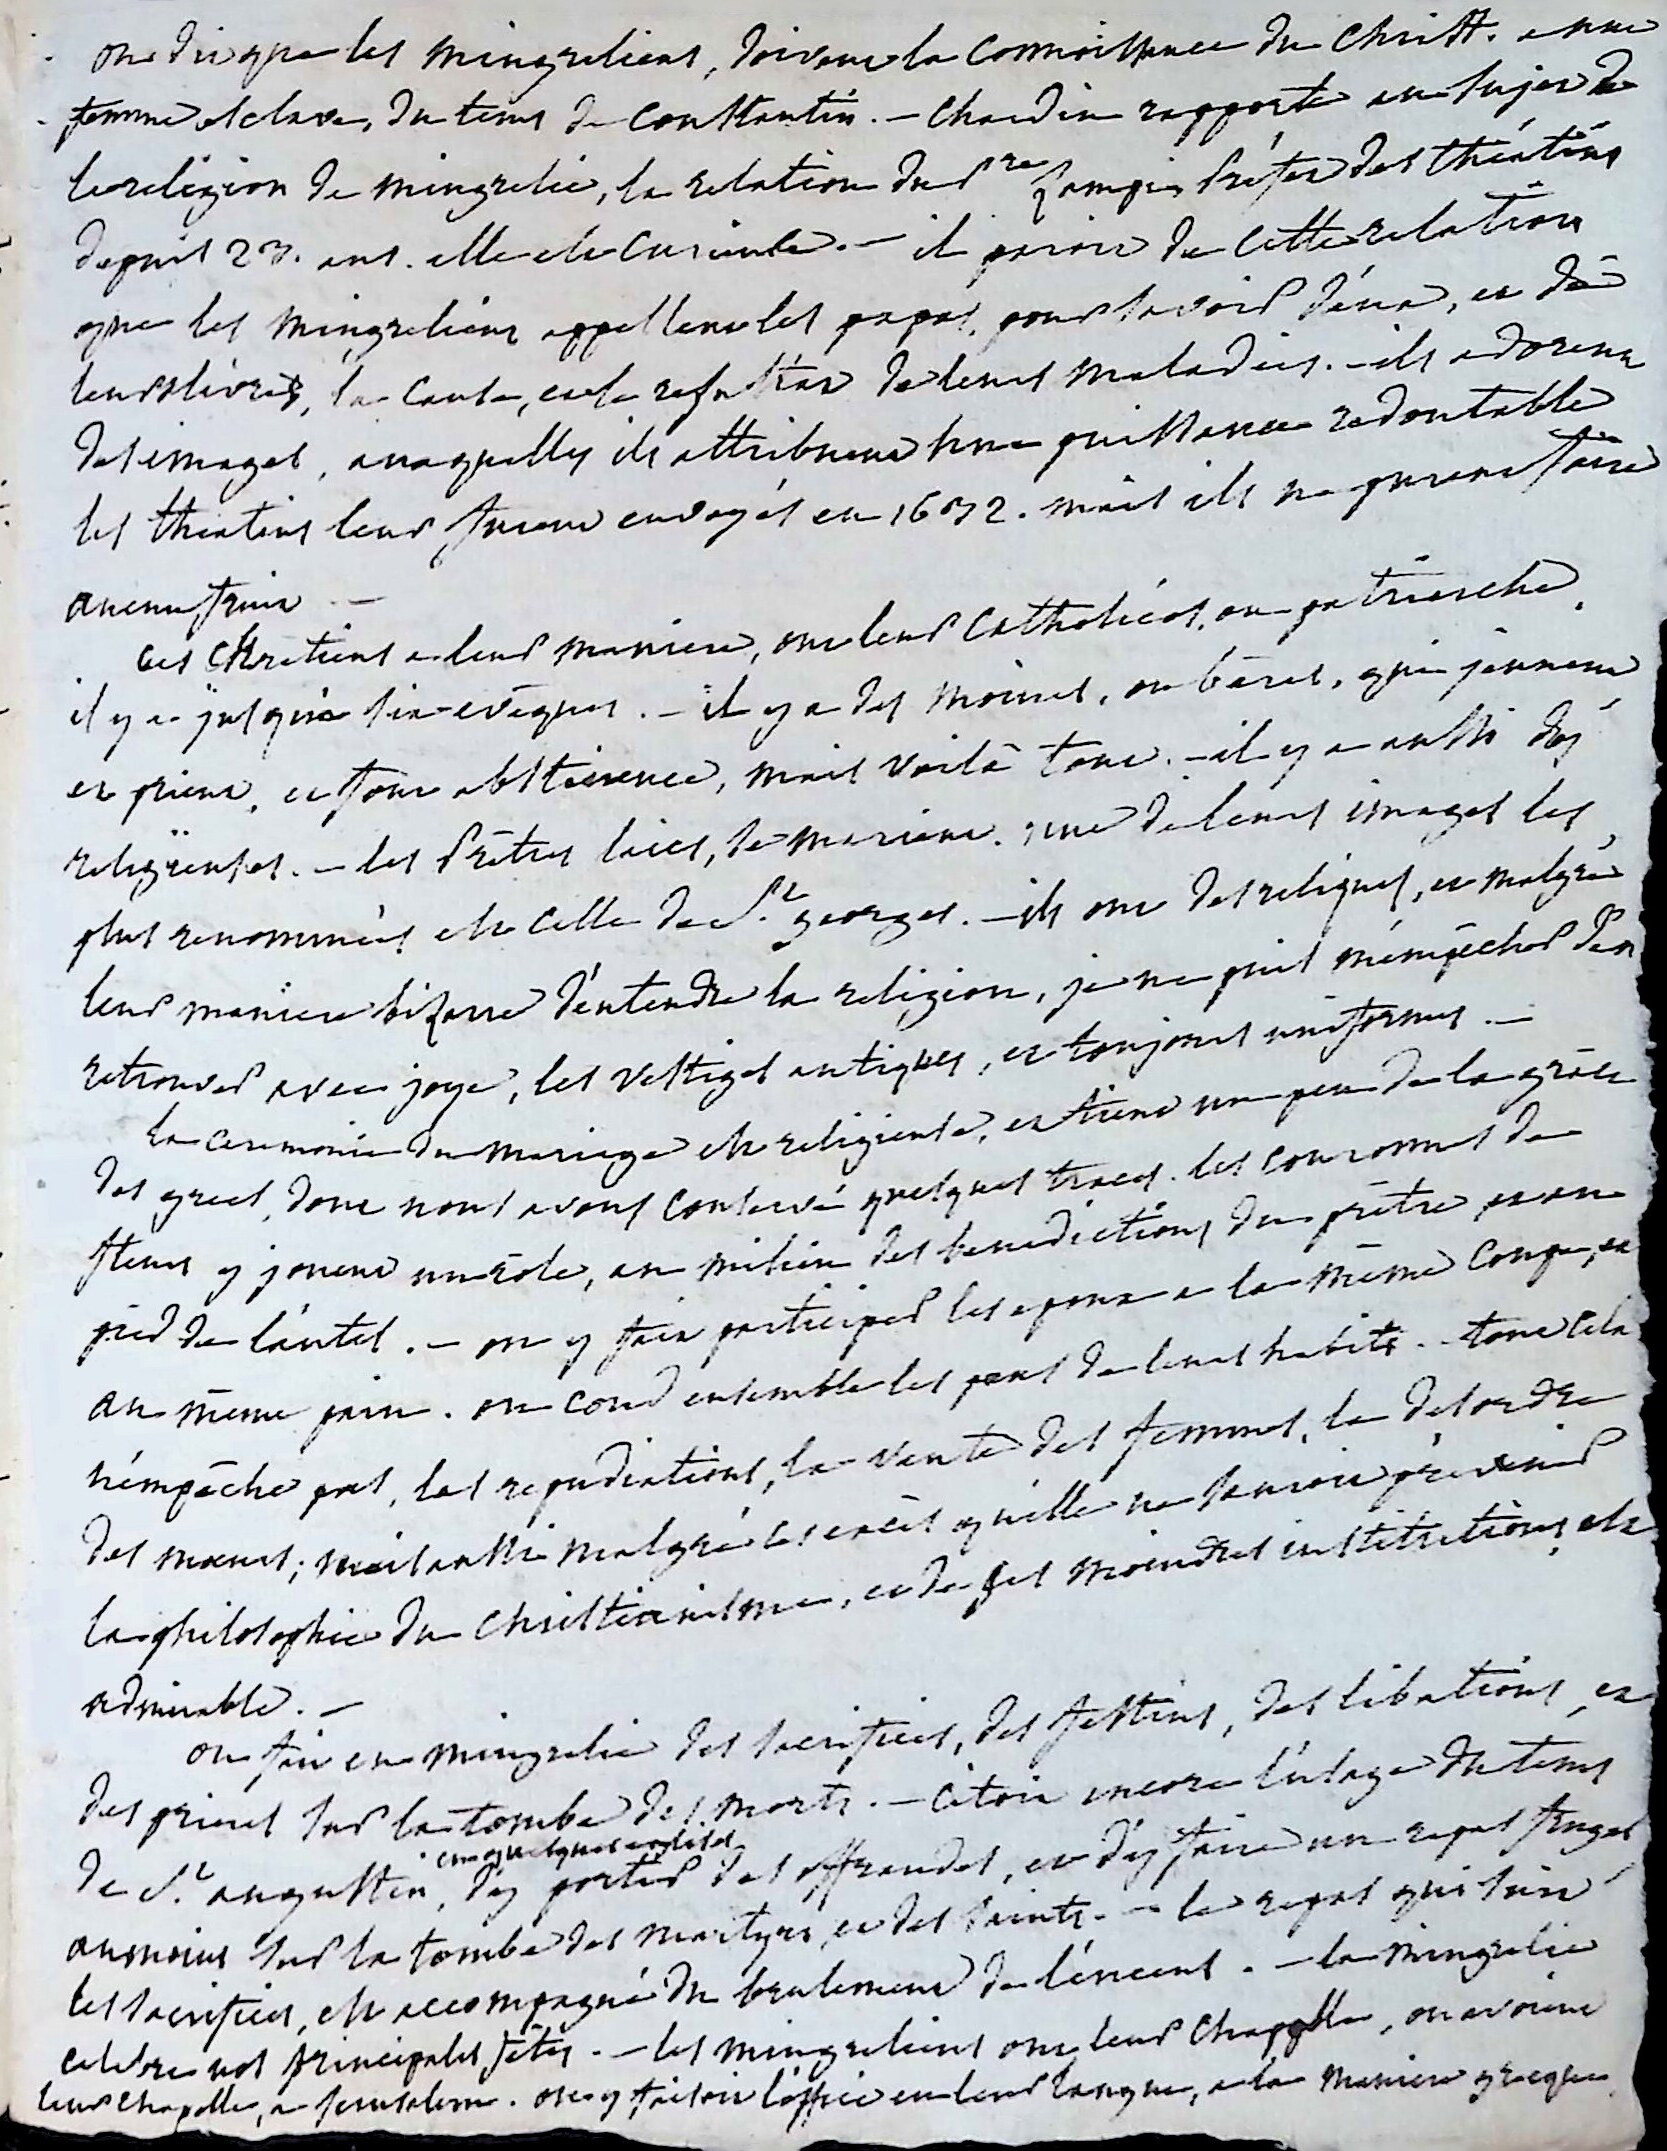 on dit que les mingreliens, doivent la connoissance du Christ. a une
femme esclave, du tems de Constantin. – Chardin rapporte au sujet de
la religion de mingrelie, la relation du P.re Zampi, Préfet des théatins
depuis 23. ans. elle est curieuse. – il paroit de cette relation
que les mingreliens appellent les papas, pour savoir d'eux, et de
leurs livres, la cause, et le resultat de leurs maladies. – ils adorent
des images, auxquelles ils attribuent une puissance redoutable
les théatins leur furent envoyés en 1632. mais ils ne purent faire
aucun fruit. –
ces Chrétiens a leur maniere, ont leur Catholicos, ou patriarche,
il y a jusqu'à six evêques. – il y a des moines, ou béres, qui jeunent
et prient, et font abstinence, mais voilà tout. – il y a aussi des
religieuses. – les Prêtres laics, se marient. une de leurs images les
plus renommées est celle de St. georges. – ils ont des reliques, et malgré
leur maniere bizarre d'entendre la religion, je ne puis m'empêcher d'en
retrouver avec joye, les vestiges antiques, et toujours uniformes. –
la ceremonie du mariage est religieuse, et tient un peu de la grâce
des grecs, dont nous avons conservé quelques traces. les couronnes de
fleurs y jouent un rôle, au milieu des benedictions du prêtre, et au
pied de l'autel. – on y fait participer les epoux a la même coupe, et
au même pain. on coud ensemble les pans de leurs habits. – tout cela
n'empêche pas, les repudiations, la vente des femmes, le desordre
des mœurs; mais aussi malgré les excès qu'elle ne sauroit prévenir
la philosophie du christianisme, et de ses moindres institutions, est
admirable. –
on fait en mingrelie des sacrifices, des festins, des libations, et
des prieres sur la tombe des morts. – c'etoit encore l'usage du tems
de St. augustin, en quelques eglises, d'y porter des offrandes, et d'y faire un repas frugal
au moins sur la tombe des martyrs, et des saints. – le repas qui suit
les sacrifices, est accompagné du brulement de l'encens. – la mingrelie
celebre nos principales fêtes. – les mingreliens ont leur Chappelle, ou avoient
leur chapelle, a Jerusalem. on y faisoit l'office en leur langue, a la maniere grecque